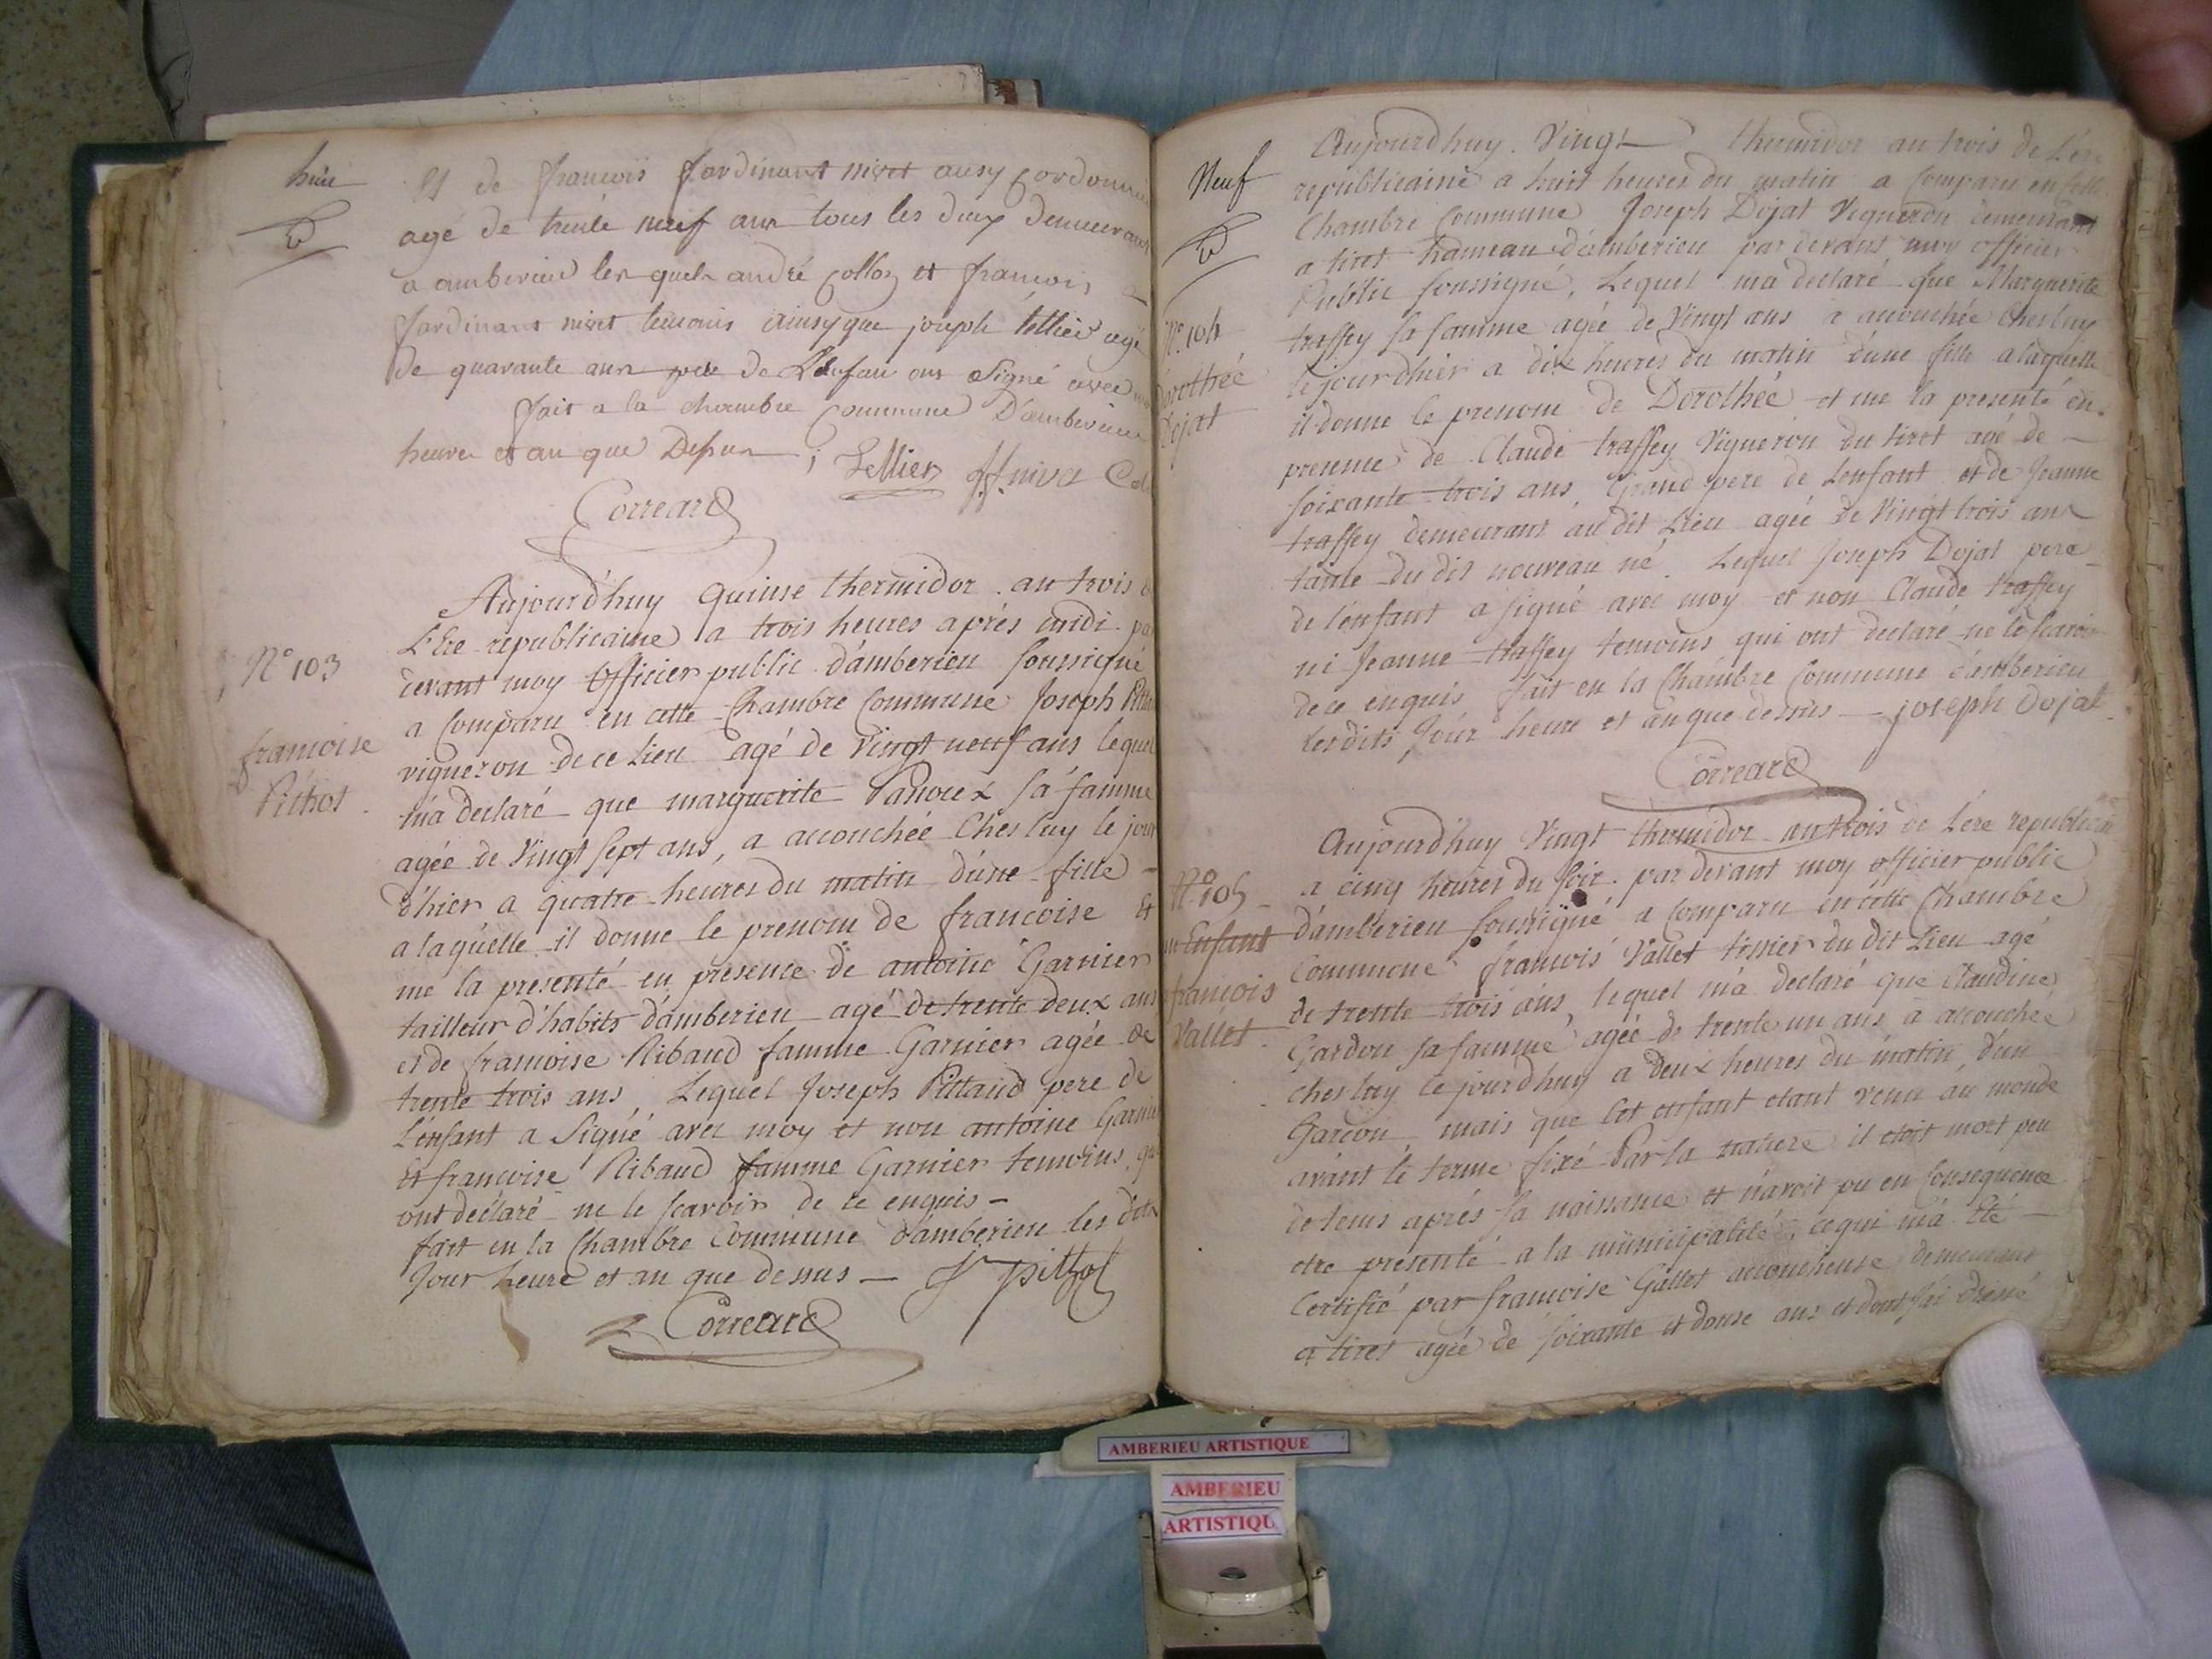 huit
et de francois fardinant nivet ausy Cordonnier
agé de trente neuf ans tous les deux demeurant
a amberieu les quels andré Colloz et francois
fardinant nivet temoins ainsy que joseph tellier agé
de quarante ans pere de Lenfan ont Signé avec
fait a la chambre Commune D'amberieu
heure et an que Desus ; Tellier ff nivet Col
Correard
N° 103
francoise
Pithot
Aujourd'huy quinse thermidor an trois
L'Ere republicaine a trois heures aprés midi
devant moy Officier public d'amberieu soussigné
a Comparu en cette Chambre Commune Joseph
vigneron de ce Lieu agé de vingt neuf ans lequel
m'a declaré que marguerite Panoux sa famme
agée de Vingt sept ans, a accouchée Ches luy le jour
d'hier a quatre heures du matin d'une fille
a laquelle il donne le prenom de francoise Et
me la presenté en presence de antoine Garnier
tailleur d'habits d'amberieu agé de trente deux ans
et de francoise Ribaud famme Garnier agée de
trente trois ans, Lequel Joseph Pittaud pere de
L'enfant a Signé avec moy et non antoine Garnier
Et francoise Ribaud famme Garnier temoins, qui
ont declaré ne le scavoir de ce enquis
fait en la Chambre Commune d'amberieu les dits
Jour heure et an que dessus — J pithot
Correard
Neuf
N° 104
Dorothée
Dojat
Aujourd'huy Vingt thermidor an trois de L'ére
republicaine a huit heures du matin a Comparu en cette
Chambre Commune Joseph Dojat Vigneron demeurant
a tiret hameau d'amberieu par devant moy officier
Public soussigné, Lequel ma declaré que Marguerite
traffey sa famme agée de Vingt ans a accouchée Ches luy
le jour d'hier a dix heures du matin d'une fille a laquelle
il donne le prenom de Dorothée et me la presenté en
presence de Claude traffey Vigneron du tiret agé de
soixante trois ans, Grand pere de Lenfant et de Jeanne
traffey demeurant au dit Lieu agée de Vingt trois ans
tante du dit nouveau né. Lequel Joseph Dojat pere
de l'enfant a signé avec moy et non Claude traffey
ni Jeanne traffey temoins qui ont declaré ne le scavoir
de ce enquis fait en la Chambre Commune d'amberieu
les dits Jour heure et an que dessus — joseph Dojat
Correard
N° 105
un Enfant
francois
Vallet
Aujourd'huy Vingt thermidor an trois de L'ére republicaine
a cinq heures du soir par devant moy officier public
d'amberieu soussigné a Comparu en cette Chambre
Commune francois Vallet tissier du dit Lieu agé
de trente trois ans, lequel m'a declaré que Claudine
Gardon sa famme agée de trente un ans a accouchée
ches luy le jourd'huy a deux heures du matin, d'un
Garcon, mais que Cet enfant etant venu au monde
avant le terme fixé Par la nature il etoit mort peu
de tems aprés sa naissance et n'avoit pu en Consequence
etre presenté a la municipalité, ce qui m'a été
Certifié par francoise Gallet accoucheuse demeurant
a tiret agée de soixante et douse ans et dont j'ai dressé
AMBERIEU ARTISTIQUE
AMBERIEU
ARTISTIQU